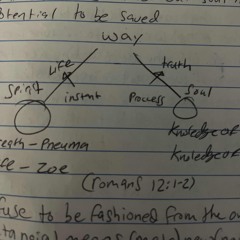 otential to be saved
way
Life truth
Spirit instant Process Soul
eath - Pneuma knowledge of
fe - Zoe knowledge of
(romans 12:1-2)
fuse to be fashioned from the ou